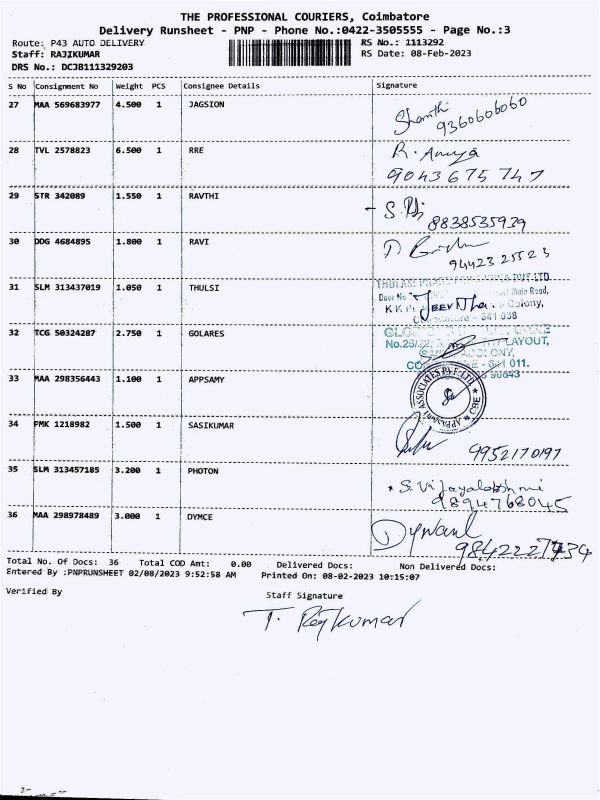 THE PROFESSIONAL COURIERS, Coimbatore
Delivery Runsheet - PNP - Phone No.:0422-3505555 - Page No.:3
Route: P43 AUTO DELIVERY RS No.: 1113292
Staff: RAJIKUMAR RS Date: 08-Feb-2023
DRS No.: DCJB111329203
S No Consignment No Weight PCS Consignee Details Signature
27 MAA 569683977 4.500 1 JAGSION Shanthi
9360606060
28 TVL 2578823 6.500 1 RRE R. Ameya
9043675747
29 STR 342089 1.550 1 RAVTHI
8838535939
30 DDG 4684895 1.800 1 RAVI
9442325523
31 SLM 313437019 1.050 1 THULSI
PVT LTD
Door No Main Road,
K K Colony,
- 641 038
32 TCG 50324287 2.750 1 GOLARES
No.25/22, LAYOUT,
COLONY,
- 641 011.
90643
33 MAA 298356443 1.100 1 APPSAMY
APPASAMY ASSOCIATES PVT. LTD. CBE
34 PMK 1218982 1.500 1 SASIKUMAR
9952170197
35 SLM 313457185 3.200 1 PHOTON S. Vijayalakshmi
9894768045
36 MAA 298978489 3.000 1 DYMCE
Total No. Of Docs: 36 Total COD Amt: 0.00 Delivered Docs: Non Delivered Docs:
Entered By :PNPRUNSHEET 02/08/2023 9:52:58 AM Printed On: 08-02-2023 10:15:07
Verified By Staff Signature
T. Rajkumar